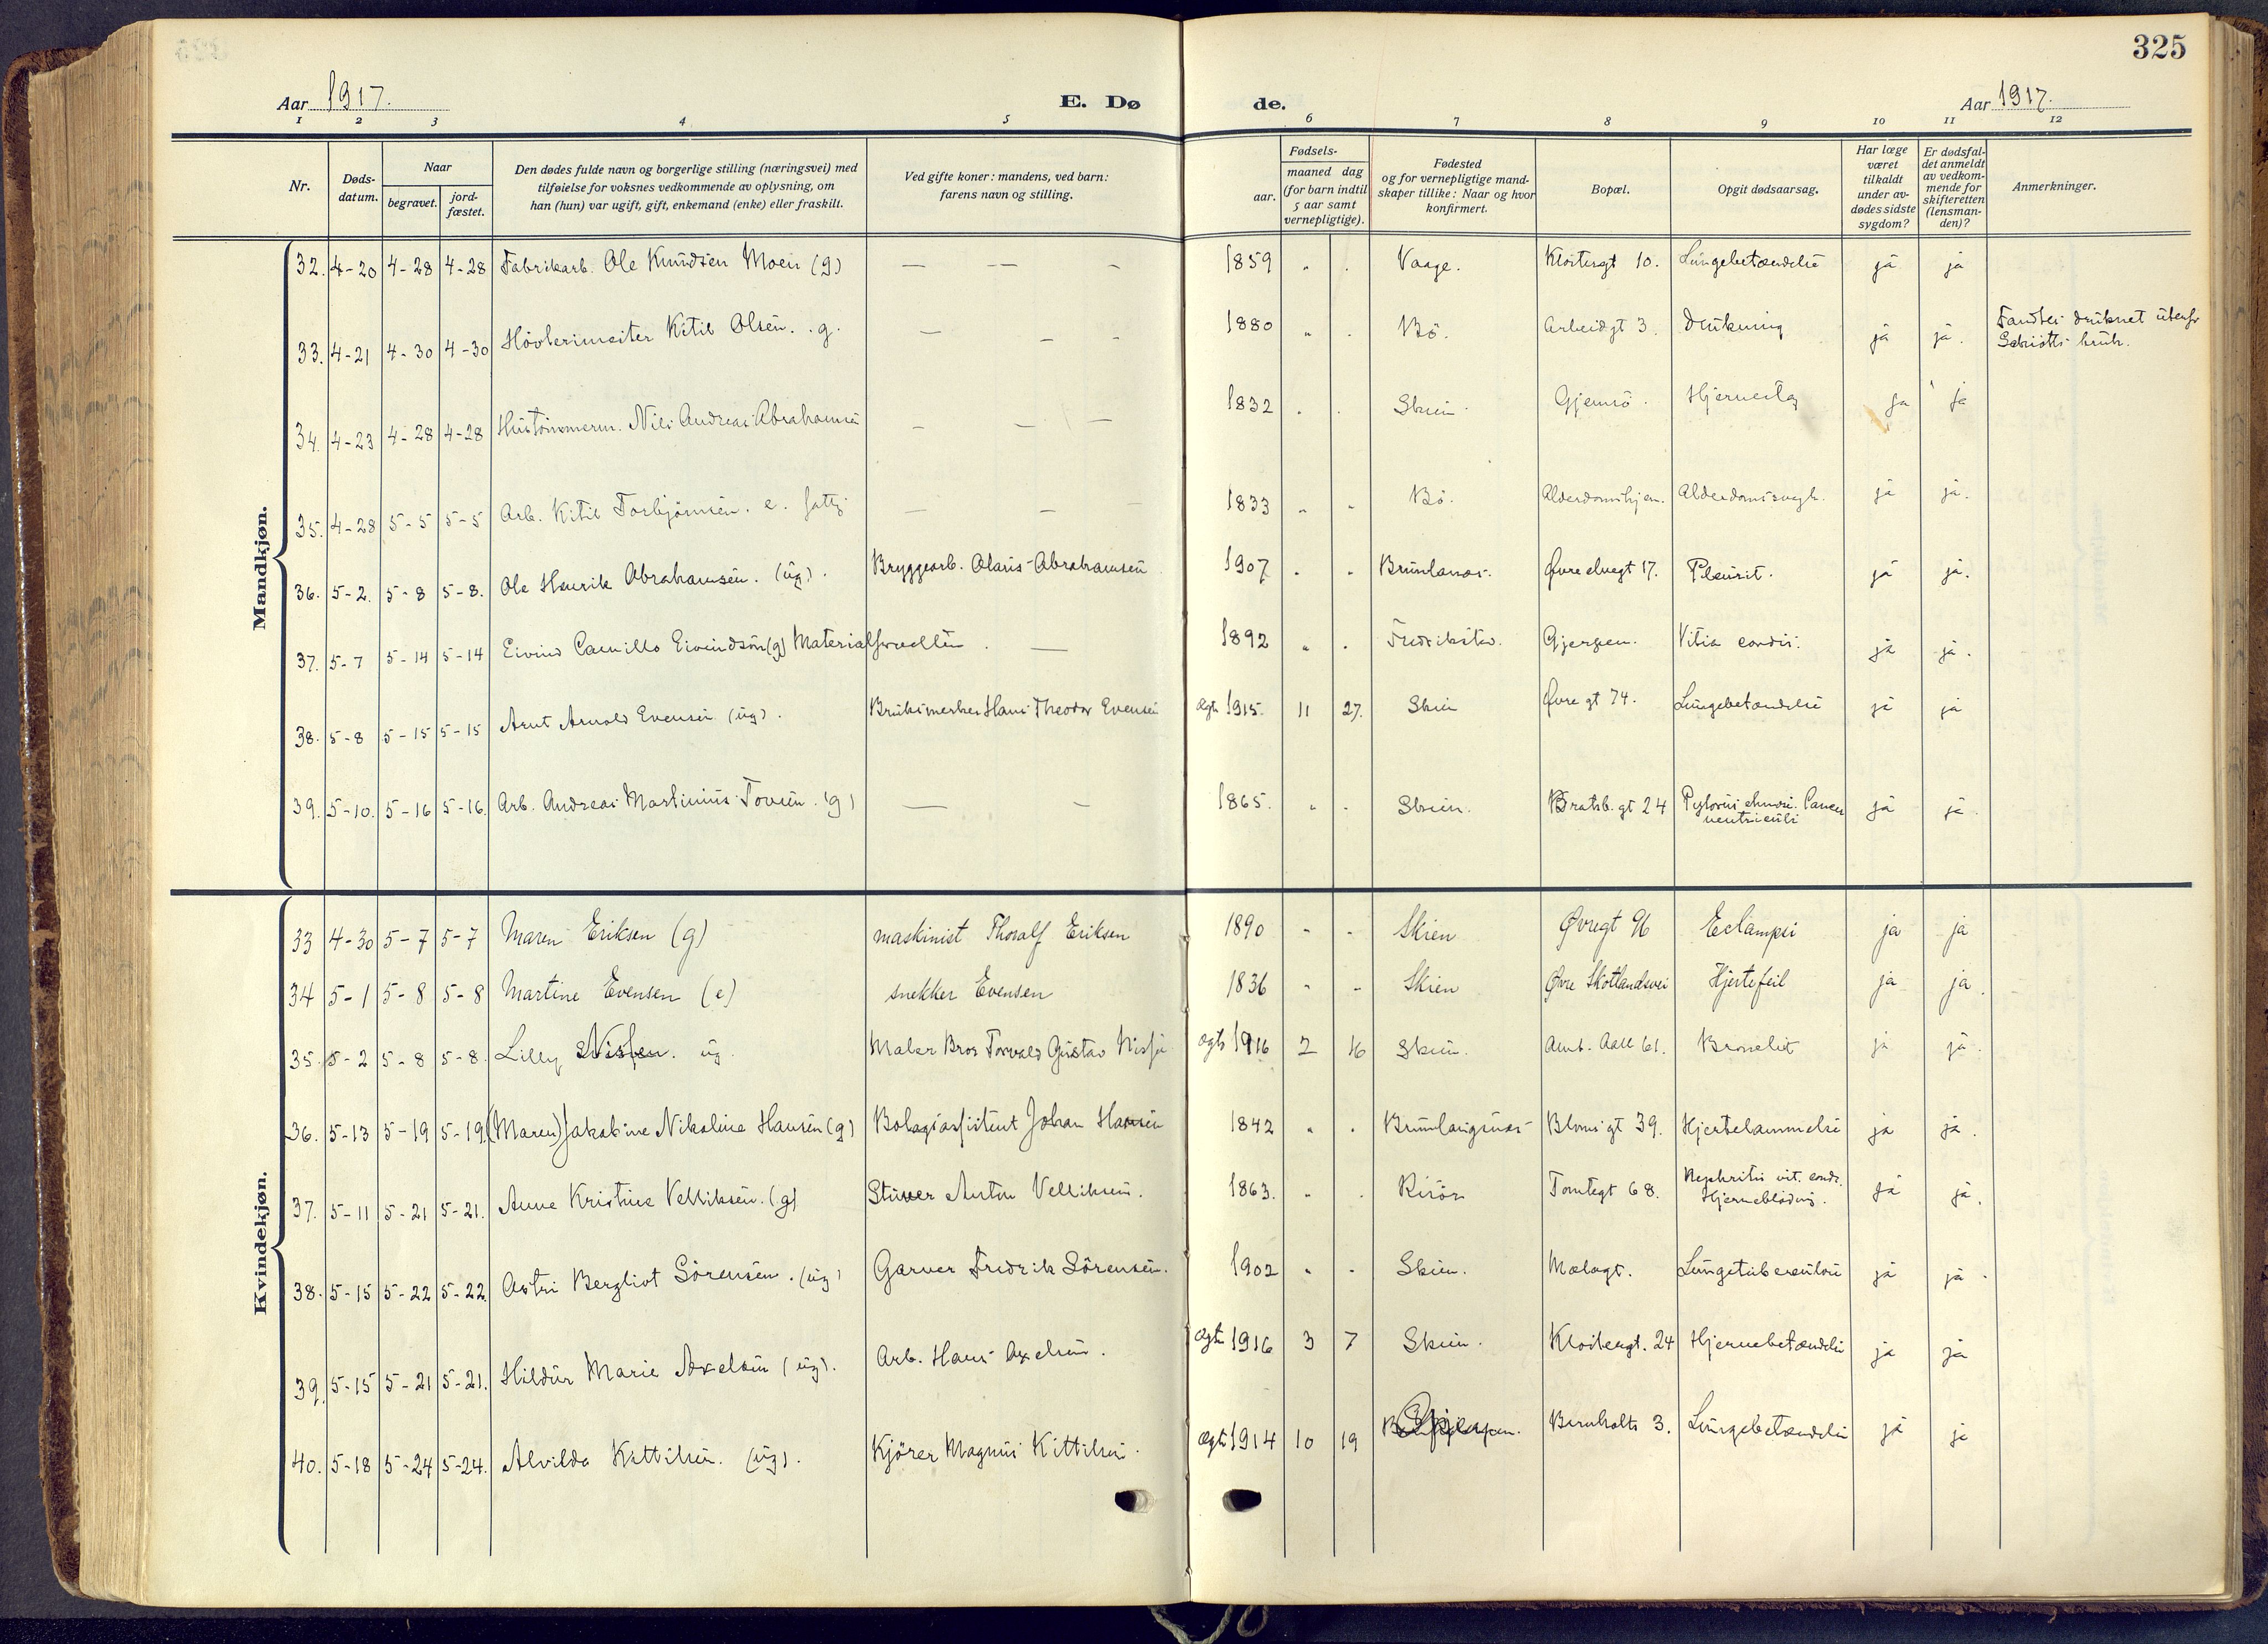 325
Aar 1917.
E. Dø de.
Aar 1917.
1 2 3 4 5 6 7 8 9 10 11 12
Nr.
Døds-
datum.
Naar
begravet.
jord-
fæstet.
Den dødes fulde navn og borgerlige stilling (næringsvei) med
tilføielse for voksnes vedkommende av oplysning, om
han (hun) var ugift, gift, enkemand (enke) eller fraskilt.
Ved gifte koner: mandens, ved barn:
farens navn og stilling.
Fødsels-
aar.
maaned dag
(for barn indtil
5 aar samt
vernepligtige).
Fødested
og for vernepligtige mand-
skaper tillike: Naar og hvor
konfirmert.
Bopæl.
Opgit dødsaarsag.
Har læge
været
tilkaldt
under av-
dødes sidste
sygdom?
Er dødsfal-
det anmeldt
av vedkom-
mende for
skifteretten
(lensman-
den)?
Anmerkninger.
Mandkjøn.
32. 4-20 4-28 4-28 Fabrikarb. Ole Knudsen Moen (g) — — - 1859 " . Vaage. Klostergt 10. Lungebetændelse ja ja
33. 4-21 4-30 4-30 Høvlerimester Kitil Olsen. g. — - - 1880 " . Bö. Arbeidgt 3. Drukning ja ja.
34. 4-23 4-28 4-28 Hustømmerm. Nils Andreas Abrahamsen - - — 1832 . . Skien. Gjemsö. Hjerneslag ja ja
35. 4-28 5-5 5-5 Arb. Kitil Torbjörnsen. e. fattig — - — 1833 " " Bö. Alderdomshjem. Alderdomssvagh. ja ja.
36. 5-2. 5-8 5-8. Ole Henrik Abrahamsen. (ug). Bryggearb. Olaus Abrahamsen 1907 " " Brunlanæs. Øvre elvegt 17. Pleurit. ja ja.
37. 5-7 5-14 5-14 Eivind Camillo Eivindsön (g) Materialforvalter. — 1892 " . Fredrikstad. Gjerpen. Vitia cordis. ja ja.
38. 5-8 5-15 5-15 Arnt Arnold Evensen (ug). Hans Theodor Evensen ægte 1915. 11 27. Skien Øvre gt 74. Lungebetændelse ja ja
39. 5-10. 5-16 5-16. Arb. Andreas Martinius Tovsen. (g) — - 1865. " - Skien. Bratsb. gt 24 Cancer
ventriculi ja ja.
Kvindekjøn.
33 4-30 5-7 5-7 Maren Eriksen (g) maskinist Thoralf Eriksen 1890 - - Skien Øvregt 96 Eclampsi ja ja
34 5-1 5-8 5-8 Martine Evensen (e) snekker Evensen 1836 - - Skien Øvre Skotlandsvei Hjertefeil ja ja.
35. 5-2 5-8 5-8. Lilly ug. Maler Torvald Gustav ægte 1916 2 16 Skien. Amt. Aall 61. Bronchit ja ja.
36. 5-13 5-19 5-19. (Maren) Jakobine Nikoline Hansen (g) Bolagsassistent Johan Hansen 1842 " . Brunlangnæs Blomsgt 39. Hjertelammelse ja ja.
37. 5-11 5-21 5-21. Anne Kristine Velliksen. (g) Stuver Anton Velliksen. 1863. " . Risör Tomtegt 68. Nephritis vit. cordis.
Hjerneblödning. ja ja.
38. 5-15 5-22 5-22. Astri Bergliot Sörensen. (ug) Garver Fredrik Sörensen. 1902 " - Skien. Mælagt. Lungetuberculose ja ja.
39. 5-15 5-21 5-21. Hildur Marie Axelsen (ug). Arb. Hans Axelsen. ægte 1916 3 7 Skien. Klostergt. 24 Hjernebetændelse ja ja
40. 5-18 5-24 5-24. Alvilda Kittilsen. (ug). Kjörer Magnus Kittilsen. ægte 1914 10 19 3. Lungebetændelse ja ja